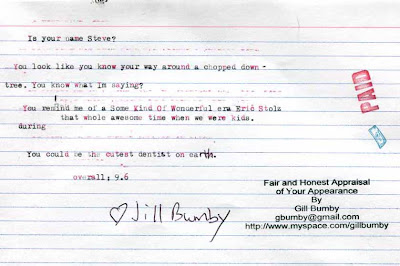 Is your name Steve?
You look like you know your way around a chopped down
tree. You know what Im saying?
You remind me of a Some Kind Of Wonderful era Eric Stolz
that whole awesome time when we were kids.
during
You could be the cutest dentist on earth.
overall: 9.6
♡ Jill Bumby
PAID
Fair and Honest Appraisal
of Your Appearance
By
Gill Bumby
gbumby@gmail.com
http://www.myspace.com/gillbumby